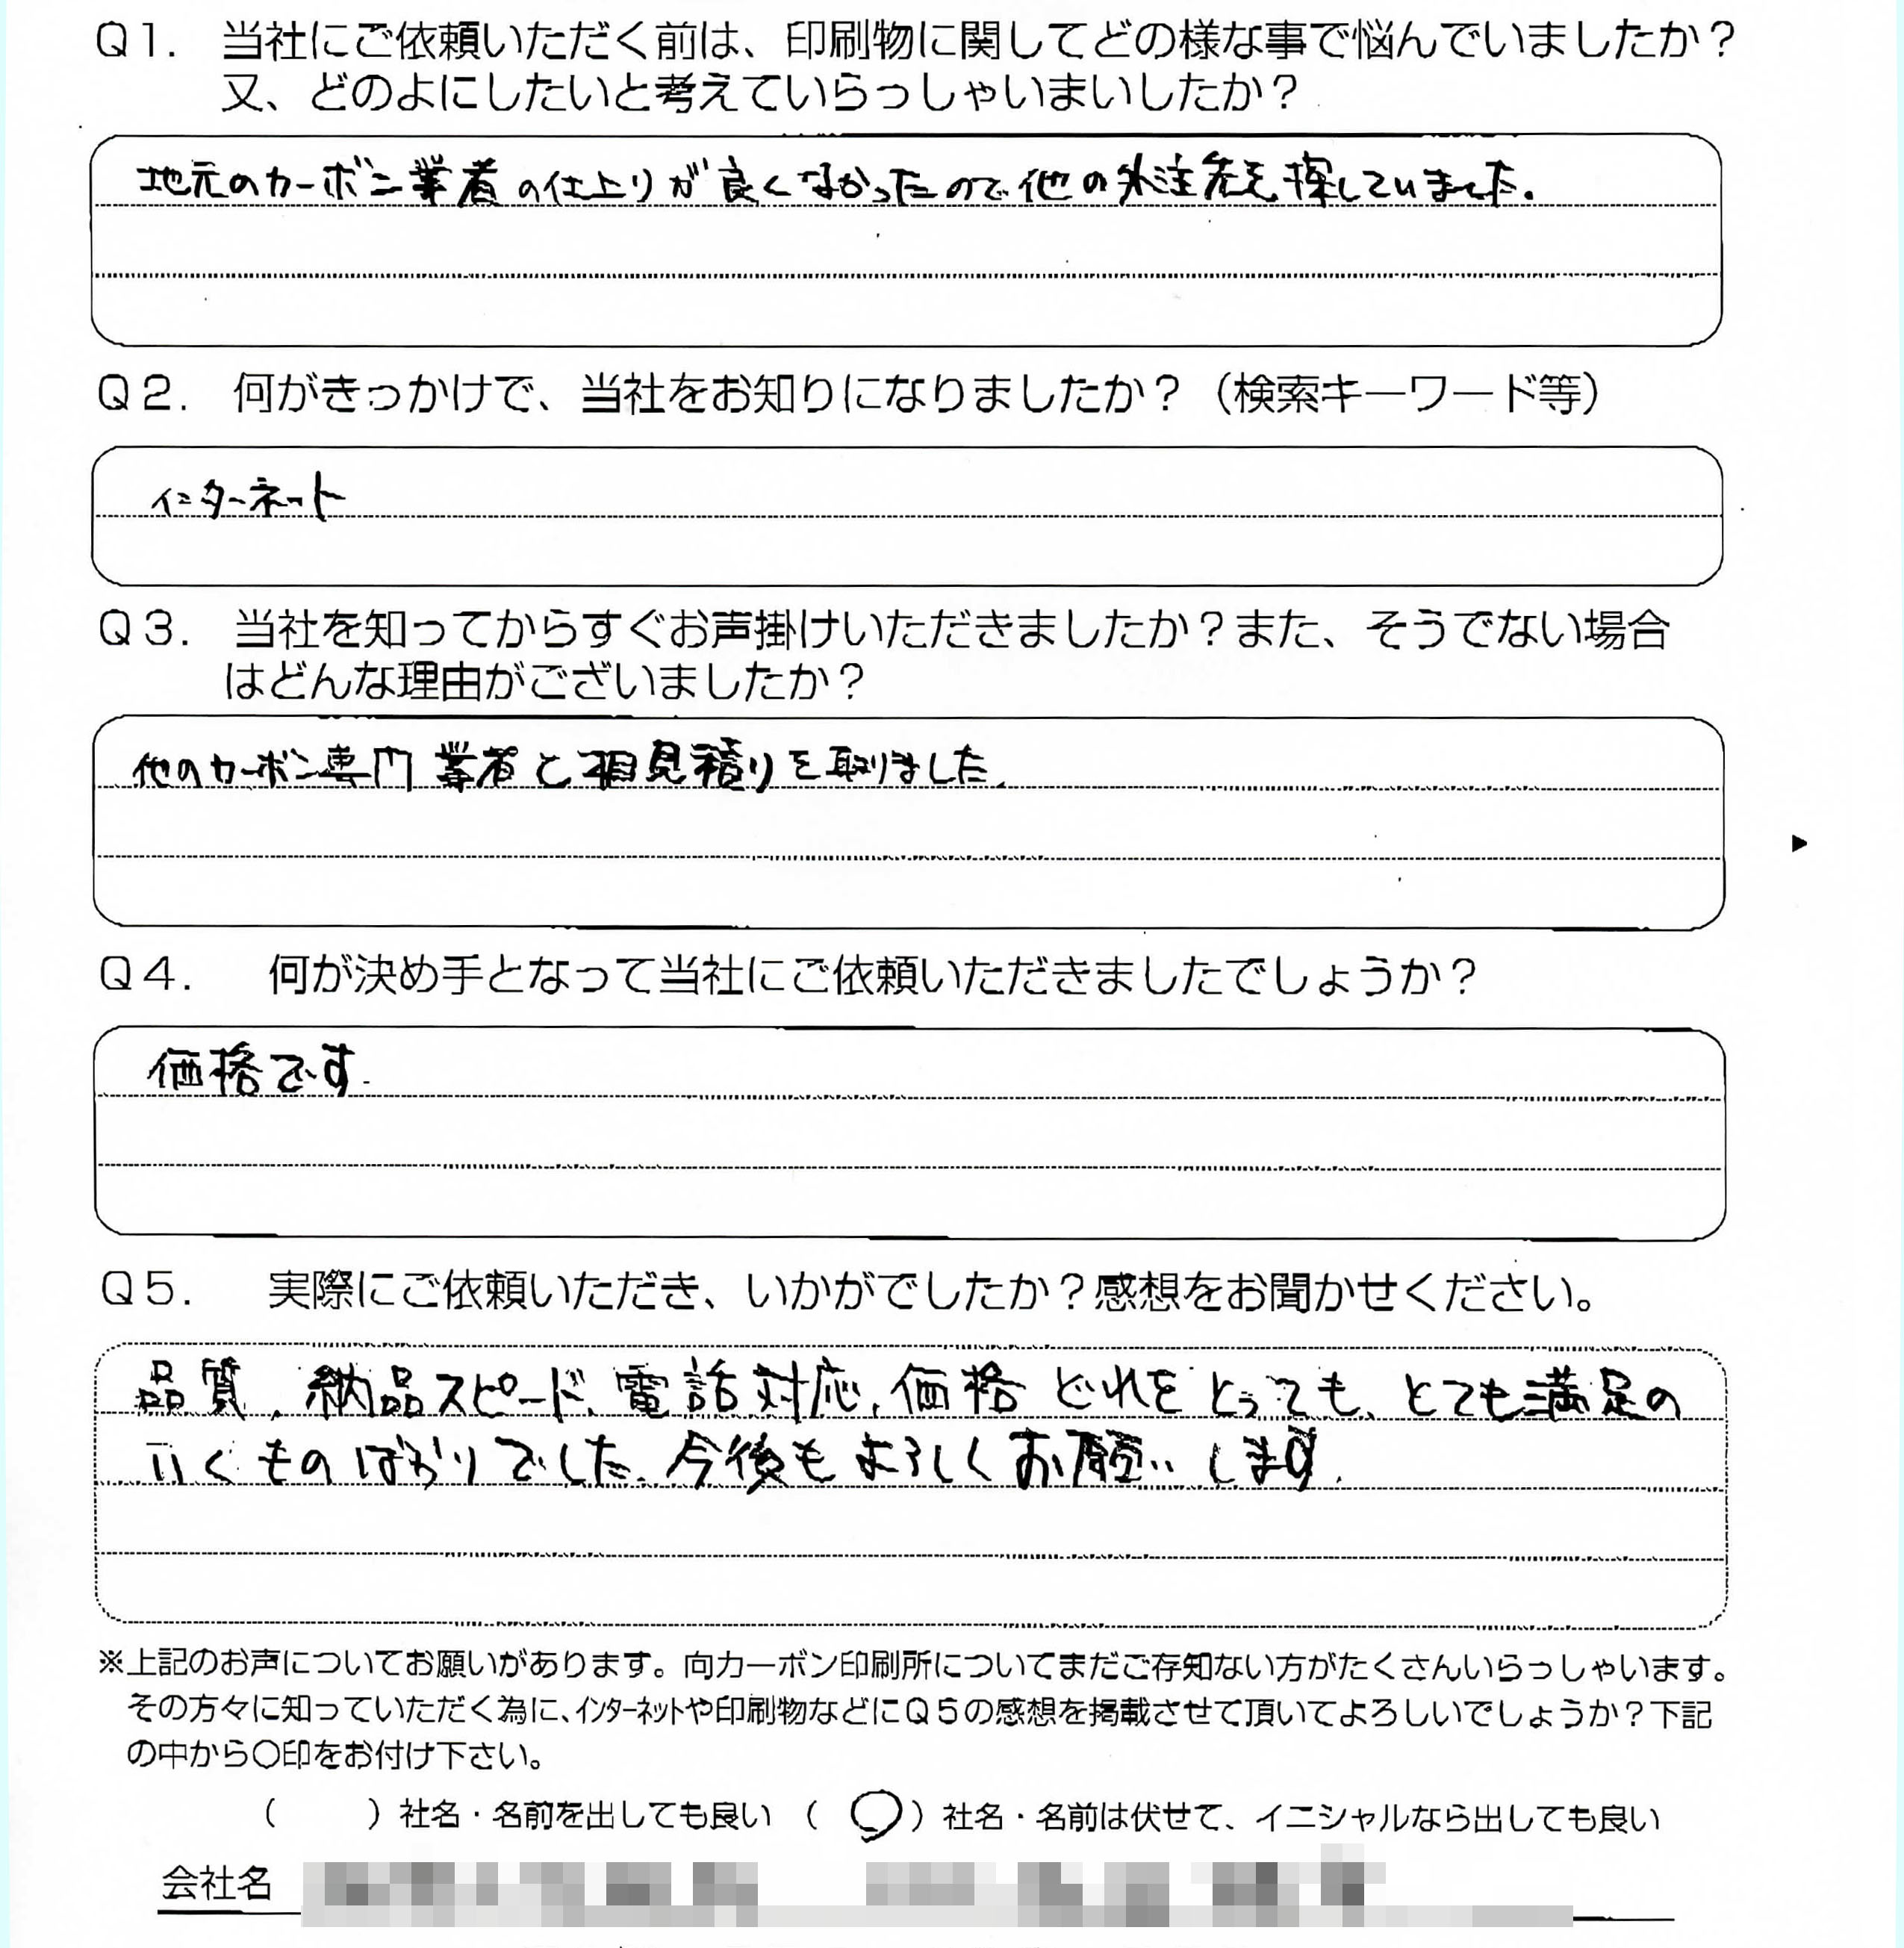 Q1. 当社にご依頼いただく前は、印刷物に関してどの様な事で悩んでいましたか？
又、どのよにしたいと考えていらっしゃいまいしたか？
地元のカーボン業者の仕上りが良くなかったので他の外注先を探していました.
Q2. 何がきっかけで、当社をお知りになりましたか？（検索キーワード等）
インターネット
Q3. 当社を知ってからすぐお声掛けいただきましたか？また、そうでない場合
はどんな理由がございましたか？
他のカーボン専門業者と相見積りを取りました.
Q4. 何が決め手となって当社にご依頼いただきましたでしょうか？
価格です.
Q5. 実際にご依頼いただき、いかがでしたか？感想をお聞かせください。
品質、納品スピード、電話対応、価格どれをとっても、とても満足の
いくものばかりでした.今後もよろしくお願いします.
※上記のお声についてお願いがあります。向カーボン印刷所についてまだご存知ない方がたくさんいらっしゃいます。
その方々に知っていただく為に、インターネットや印刷物などにQ5の感想を掲載させて頂いてよろしいでしょうか？下記
の中から〇印をお付け下さい。
（　　）社名・名前を出しても良い（ 〇 ）社名・名前は伏せて、イニシャルなら出しても良い
会社名